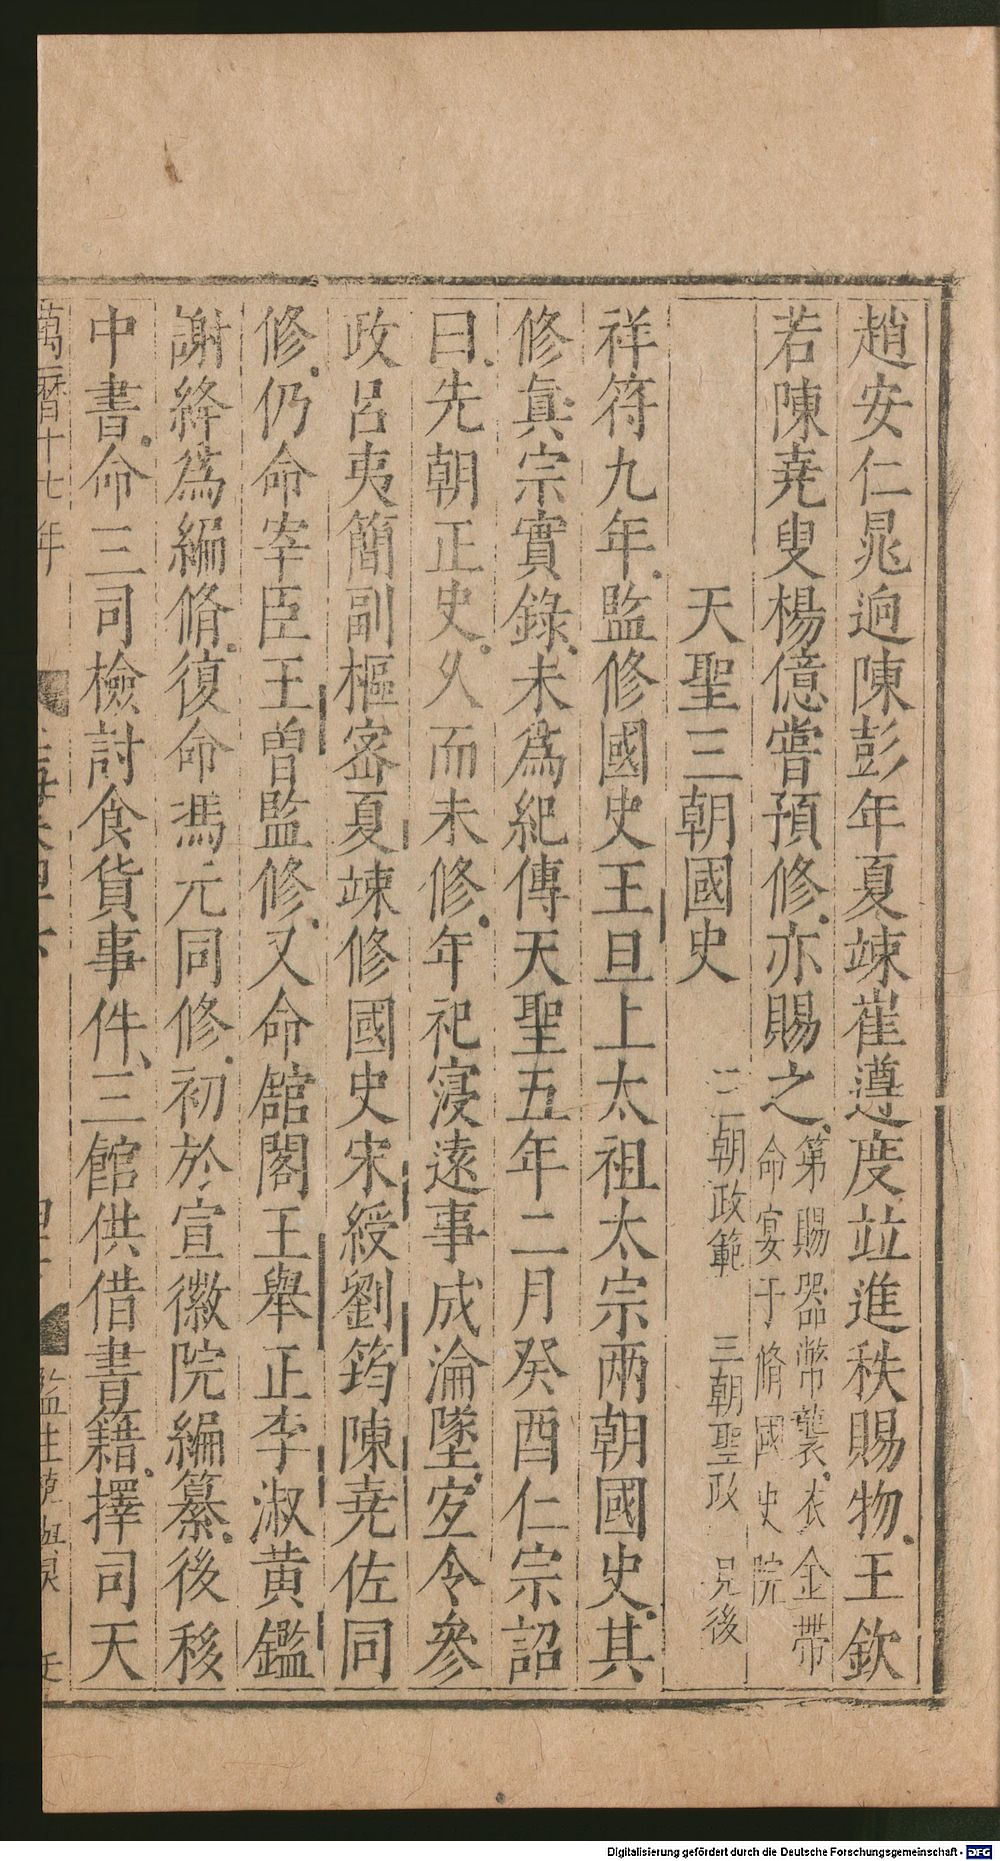 趙安仁晁迥陳彭年夏竦崔遵度並進秩賜物王欽
若陳堯叟楊億嘗預修亦賜之第賜器幣襲衣金帶命宴于脩國史院
天聖三朝國史 三朝政範 三朝聖政 見後
祥符九年監修國史王旦上太祖太宗兩朝國史其
修眞宗實錄未爲紀傳天聖五年二月癸酉仁宗詔
曰先朝正史久而未修年祀寖遠事成淪墜宜令參
政呂夷簡副樞密夏竦修國史宋綬劉筠陳堯佐同
修仍命宰臣王曾監修又命舘閣王舉正李淑黄鑑
謝絳爲編脩復命馮元同修初於宣徽院編纂後移
中書命三司檢討食貨事件三館供借書籍擇司天
萬曆十七年
Digitalisierung gefördert durch die Deutsche Forschungsgemeinschaft - DFG